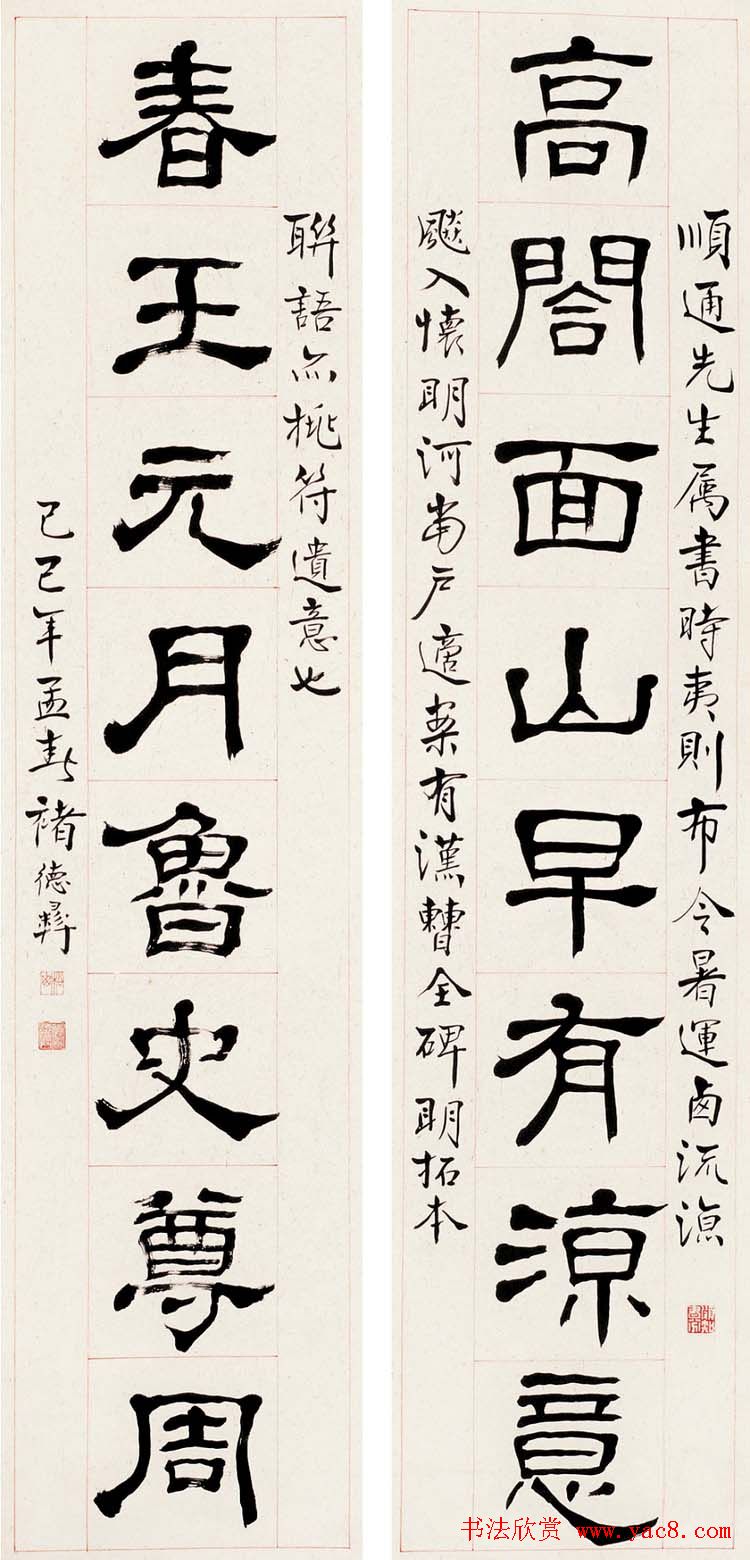 順通先生属書時夷則布令暑運鹵流涼
高閤面山早有涼意
飈入懷明河當户適案有漢曹全碑明拓本
聯語亦桃符遺意也
春王元月魯史尊周
己巳年孟春褚德彝
书法欣赏 www.yac8.com